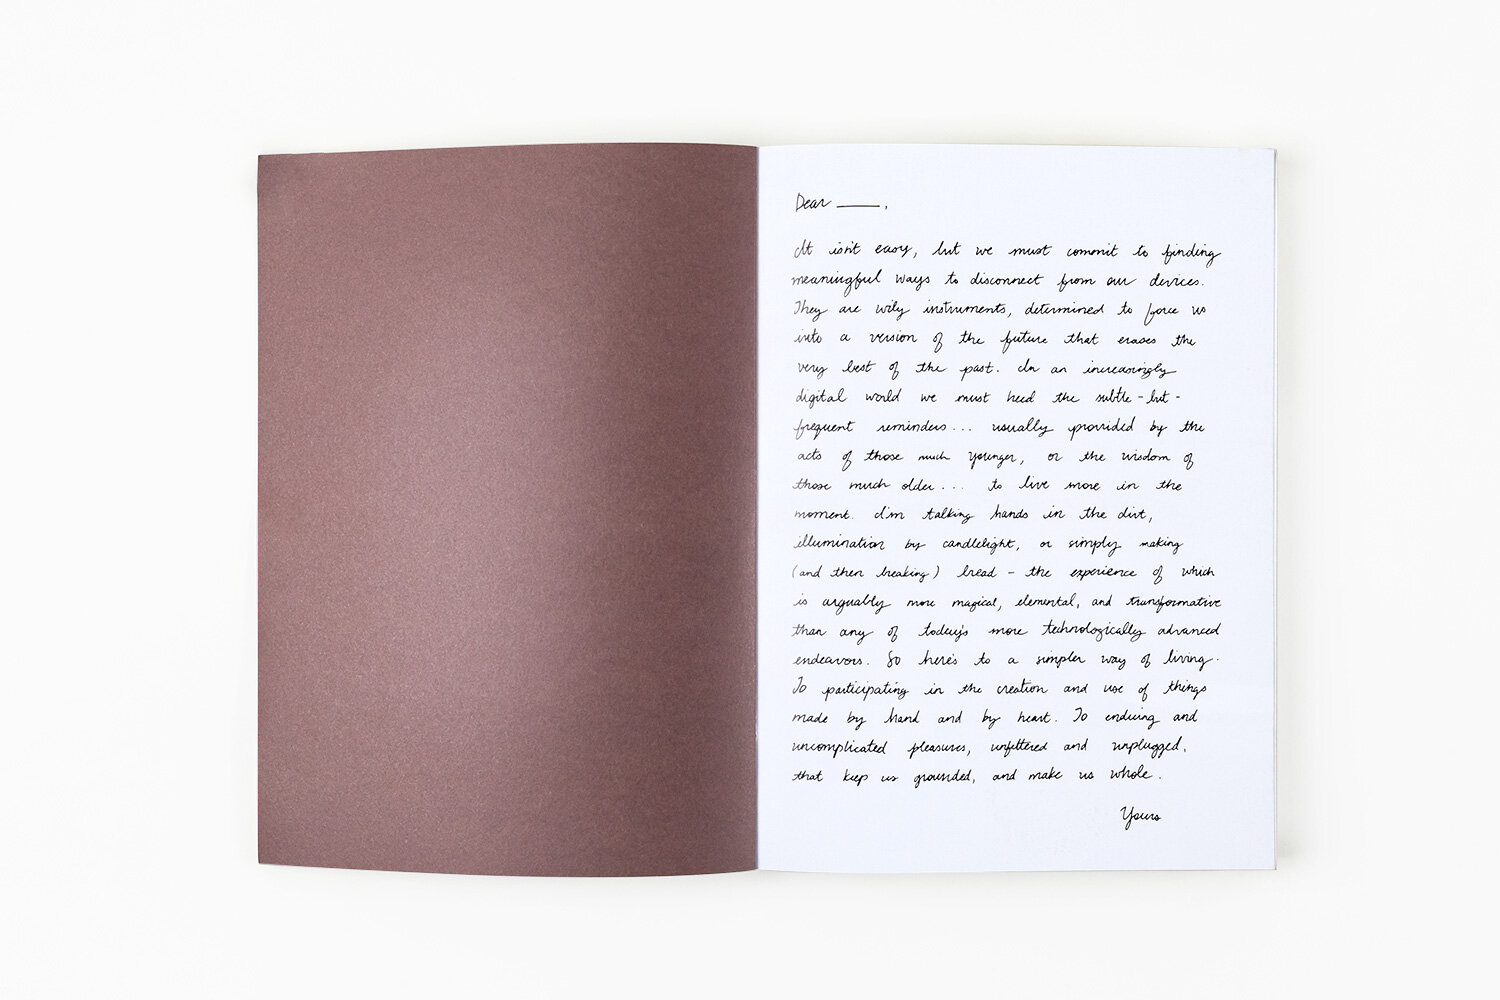 Dear ____,
It isn't easy, but we must commit to finding
meaningful ways to disconnect from our devices.
They are wily instruments, determined to force us
into a version of the future that erases the
very best of the past. In an increasingly
digital world we must heed the subtle-but-
frequent reminders... usually provided by the
acts of those much younger, or the wisdom of
those much older... to live more in the
moment. I'm talking hands in the dirt,
illumination by candlelight, or simply making
(and then breaking) bread - the experience of which
is arguably more magical, elemental, and transformative
than any of today's more technologically advanced
endeavors. So here's to a simpler way of living.
To participating in the creation and use of things
made by hand and by heart. To enduring and
uncomplicated pleasures, unfiltered and unplugged,
that keep us grounded, and make us whole.
Yours